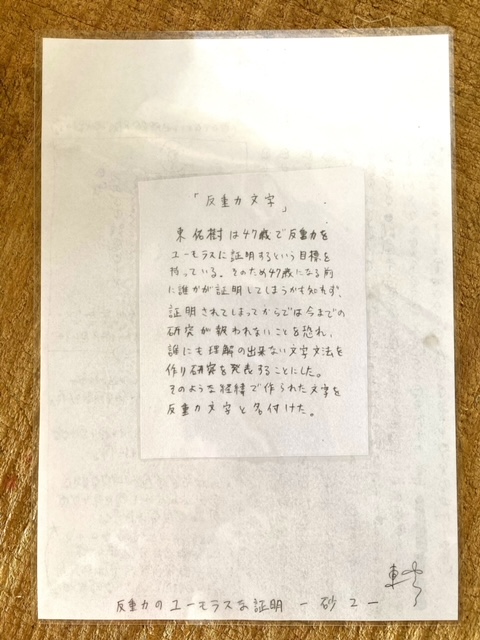 「反重力文字」
東佑樹は47歳で反重力を
ユーモラスに証明するという目標を
持っている。そのため47歳になる前
に誰かが証明してしまうかも知れず、
証明されてしまってからでは今までの
研究が報われないことを恐れ、
誰にも理解の出来ない文字文法を
作り研究を発表することにした。
そのような経緯で作られた文字を
反重力文字と名付けた。
反重力のユーモラスな証明 ー 砂 2 ー